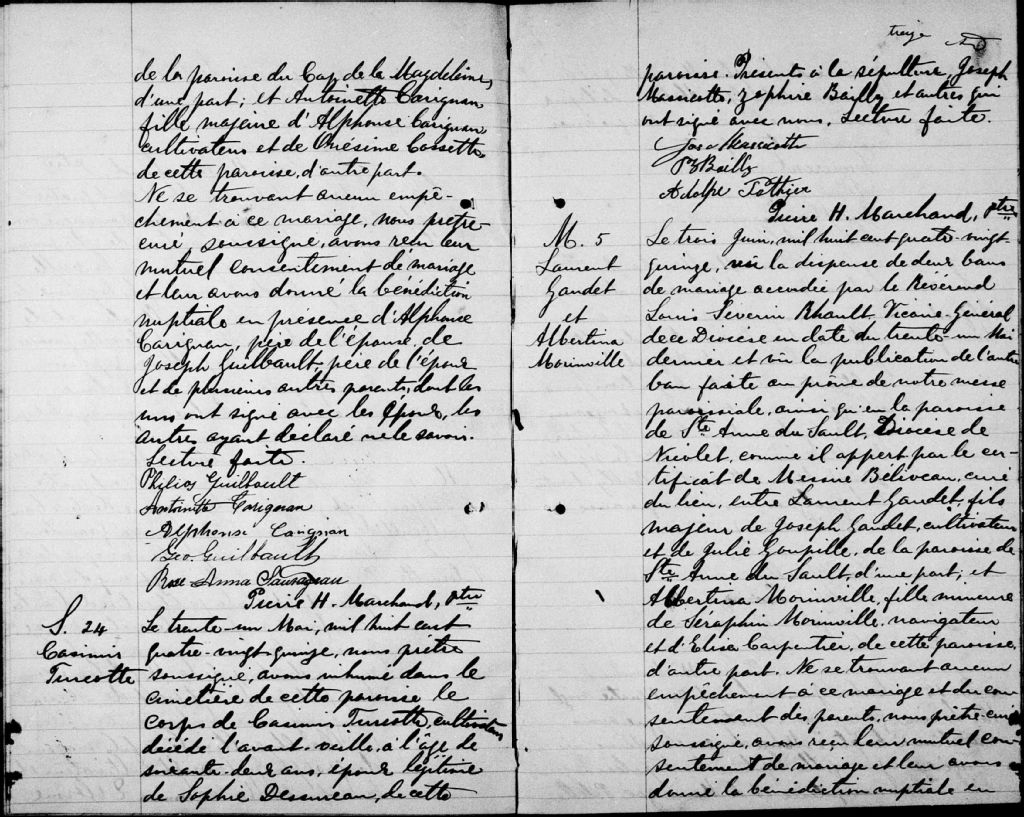 de la paroisse du Cap de la Magdeleine,
d'une part; et Antoinette Carignan
fille majeure d'Alphonse Carignan
cultivateur et de Onésime Cossette
de cette paroisse, d'autre part.
Ne se trouvant aucun empê-
chement à ce mariage, nous prêtre-
curé, soussigné, avons reçu leur
mutuel consentement de mariage
et leur avons donné la bénédiction
nuptiale en présence d'Alphonse
Carignan, père de l'épouse, de
Joseph Guilbault, père de l'époux
et de plusieurs autres parents, dont les
uns ont signé avec les époux, les
autres ayant déclaré ne le savoir.
Lecture faite.
Guilbault
Antoinette Carignan
Alphonse Carignan
Geo. Guilbault
Rose Anna
Pierre H. Marchand, Ptre
S. 24
Casimir
Turcotte
Le trente-un Mai, mil huit cent
quatre-vingt-quinze, nous prêtre
soussigné, avons inhumé dans le
cimetière de cette paroisse le
corps de Casimir Turcotte, cultivateur
décédé l'avant-veille, à l'âge de
soixante-deux ans, époux légitime
de Sophie Dessureau, de cette
treize
paroisse. Présents à la sépulture, Joseph
Massicotte, Zéphire Bailly et autres qui
ont signé avec nous. Lecture faite.
Jos Massicotte
Z Bailly
Adolphe Pothier
Pierre H. Marchand, Ptre
M. 5
Laurent
Gaudet
et
Albertina
Morinville
Le trois Juin, mil huit cent quatre-vingt
quinze, vu la dispense de deux bans
de mariage accordée par le Révérend
Louis Severin Rhault, Vicaire-Général
de ce Diocèse en date du trente-un Mai
dernier et vu la publication de l'autre
ban faite au prône de notre messe
paroissiale, ainsi qu'en la paroisse
de Ste Anne du Sault, Diocèse de
Nicolet, comme il appert par le cer-
tificat de Messire Béliveau, curé
du lieu, entre Laurent Gaudet, fils
majeur de Joseph Gaudet, cultivateur
et de Julie Goupille, de la paroisse de
Ste Anne du Sault, d'une part; et
Albertina Morinville, fille mineure
de Séraphin Morinville, navigateur
et d'Elise Carpentier, de cette paroisse,
d'autre part. Ne se trouvant aucun
empêchement à ce mariage et du con
sentement des parents, nous prêtre-curé
soussigné, avons reçu leur mutuel con-
sentement de mariage et leur avons
donné la bénédiction nuptiale en